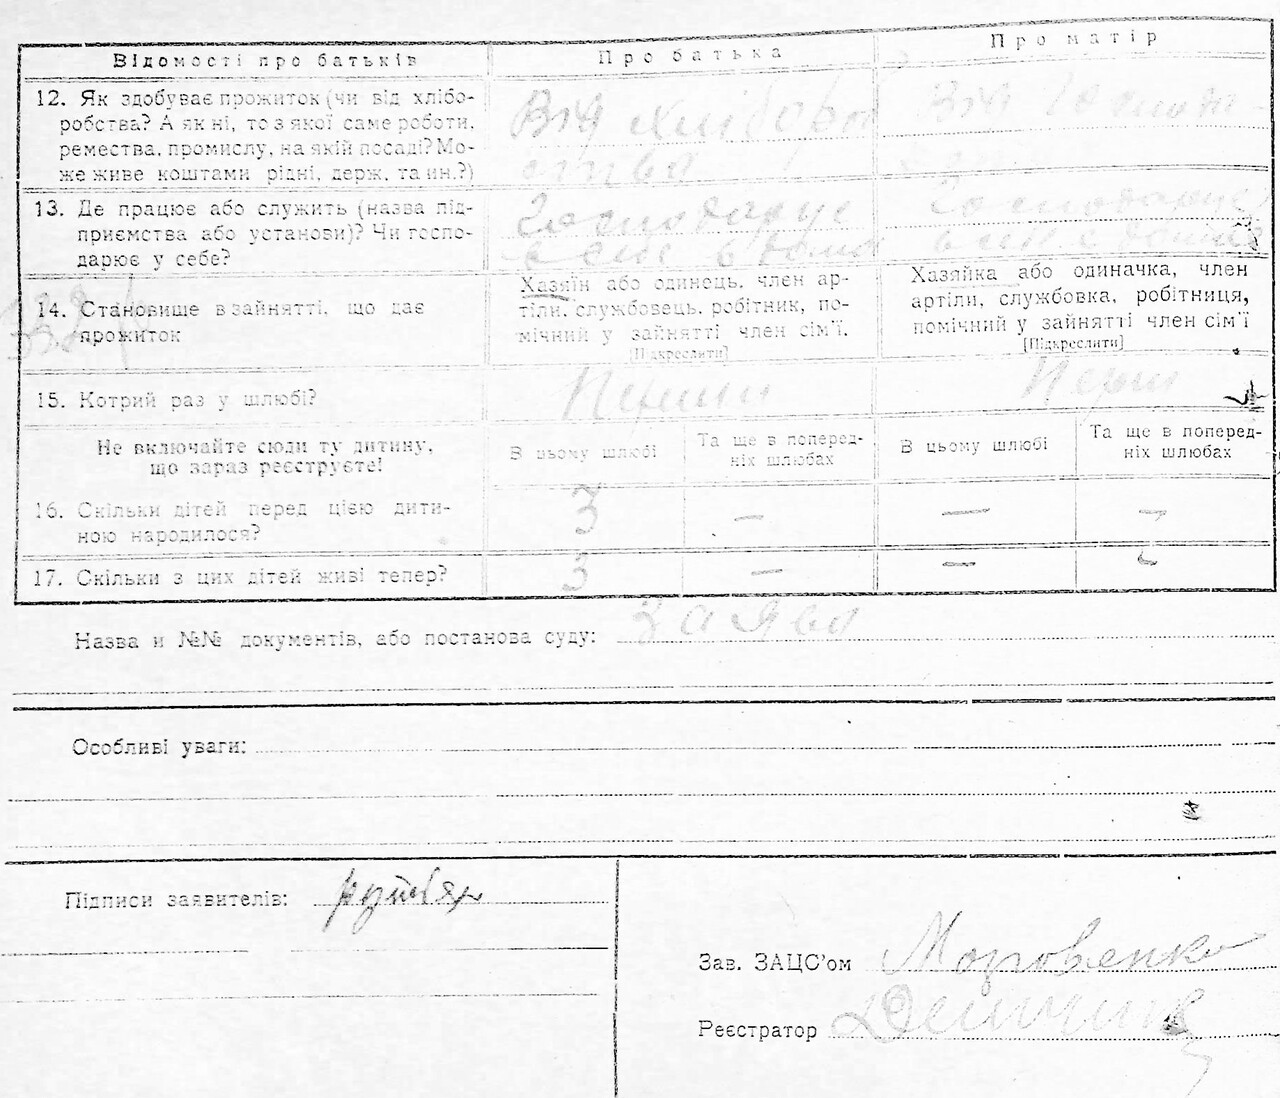 Відомості про батьків
Про батька
Про матір
12. Як здобуває прожиток (чи від хлібо-
робства? А як ні, то з якої саме роботи,
ремества, промислу, на якій посаді? Мо-
же живе коштами рідні, держ. та ин.?)
Від хлібороб
ства
Від Господа
13. Де працює або служить (назва під-
приємства або установи)? Чи госпо-
дарює у себе?
Господарує
в дома
Господарує
14. Становище в зайнятті, що дає
прожиток
Хазяїн або одинець, член ар-
тіли, службовець, робітник, по-
мічний у зайнятті член сім'ї.
[Підкреслити]
Хазяйка або одиначка, член
артіли, службовка, робітниця,
помічний у зайнятті член сім'ї
[Підкреслити]
15. Котрий раз у шлюбі?
Перший
Перш
Не включайте сюди ту дитину,
що зараз реєструєте!
В цьому шлюбі
Та ще в поперед-
ніх шлюбах
В цьому шлюбі
Та ще в поперед-
ніх шлюбах
16. Скільки дітей перед цією дити-
ною народилося?
3 – – –
17. Скільки з цих дітей живі тепер?
3 – – –
Назва и №№ документів, або постанова суду: заява
Особливі уваги:
Підписи заявителів:
Зав. ЗАЦС'ом
Реєстратор